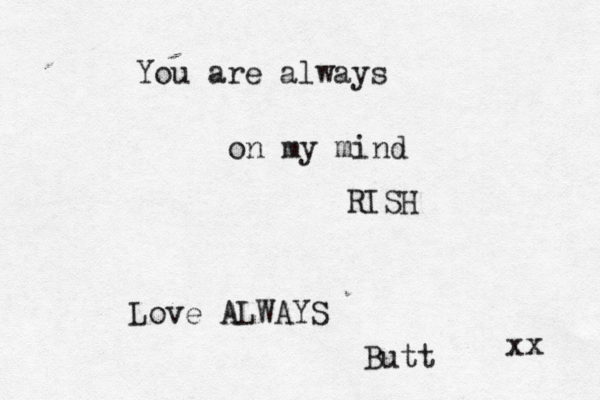 You are always
on my mind
RISH
Love ALWAYS
Butt xx